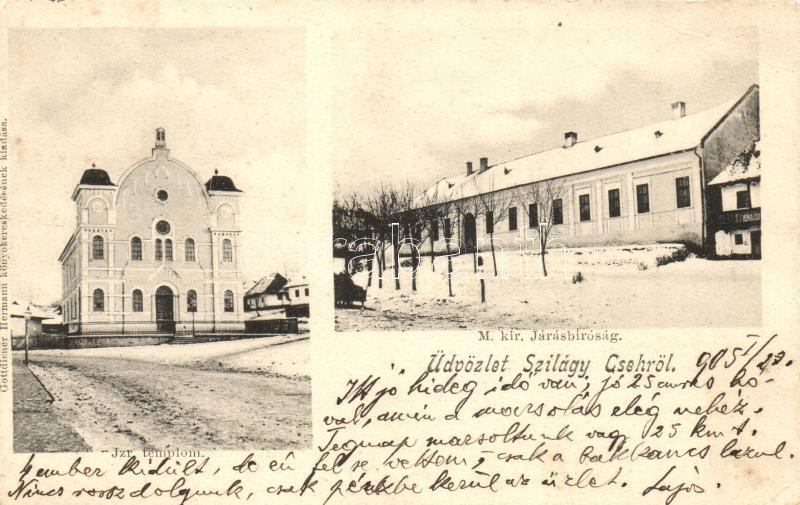 Gottdiener Hermann könyvkereskedésének kiadása.
M. kir. Járásbíróság.
Üdvözlet Szilágy Csehről. 905 I/23.
Itt jó hideg idő van, jó 25 cm-es hóval, amin a marsolás elég nehéz.
Tegnap marsoltunk vagy 25 km-t.
Izr. templom.
ember kidült, de én fel se vettem, csak a bakkancs lazul.
Nincs rossz dolgunk, csak pénzbe kerül az üzlet. Lajos.
darabanth